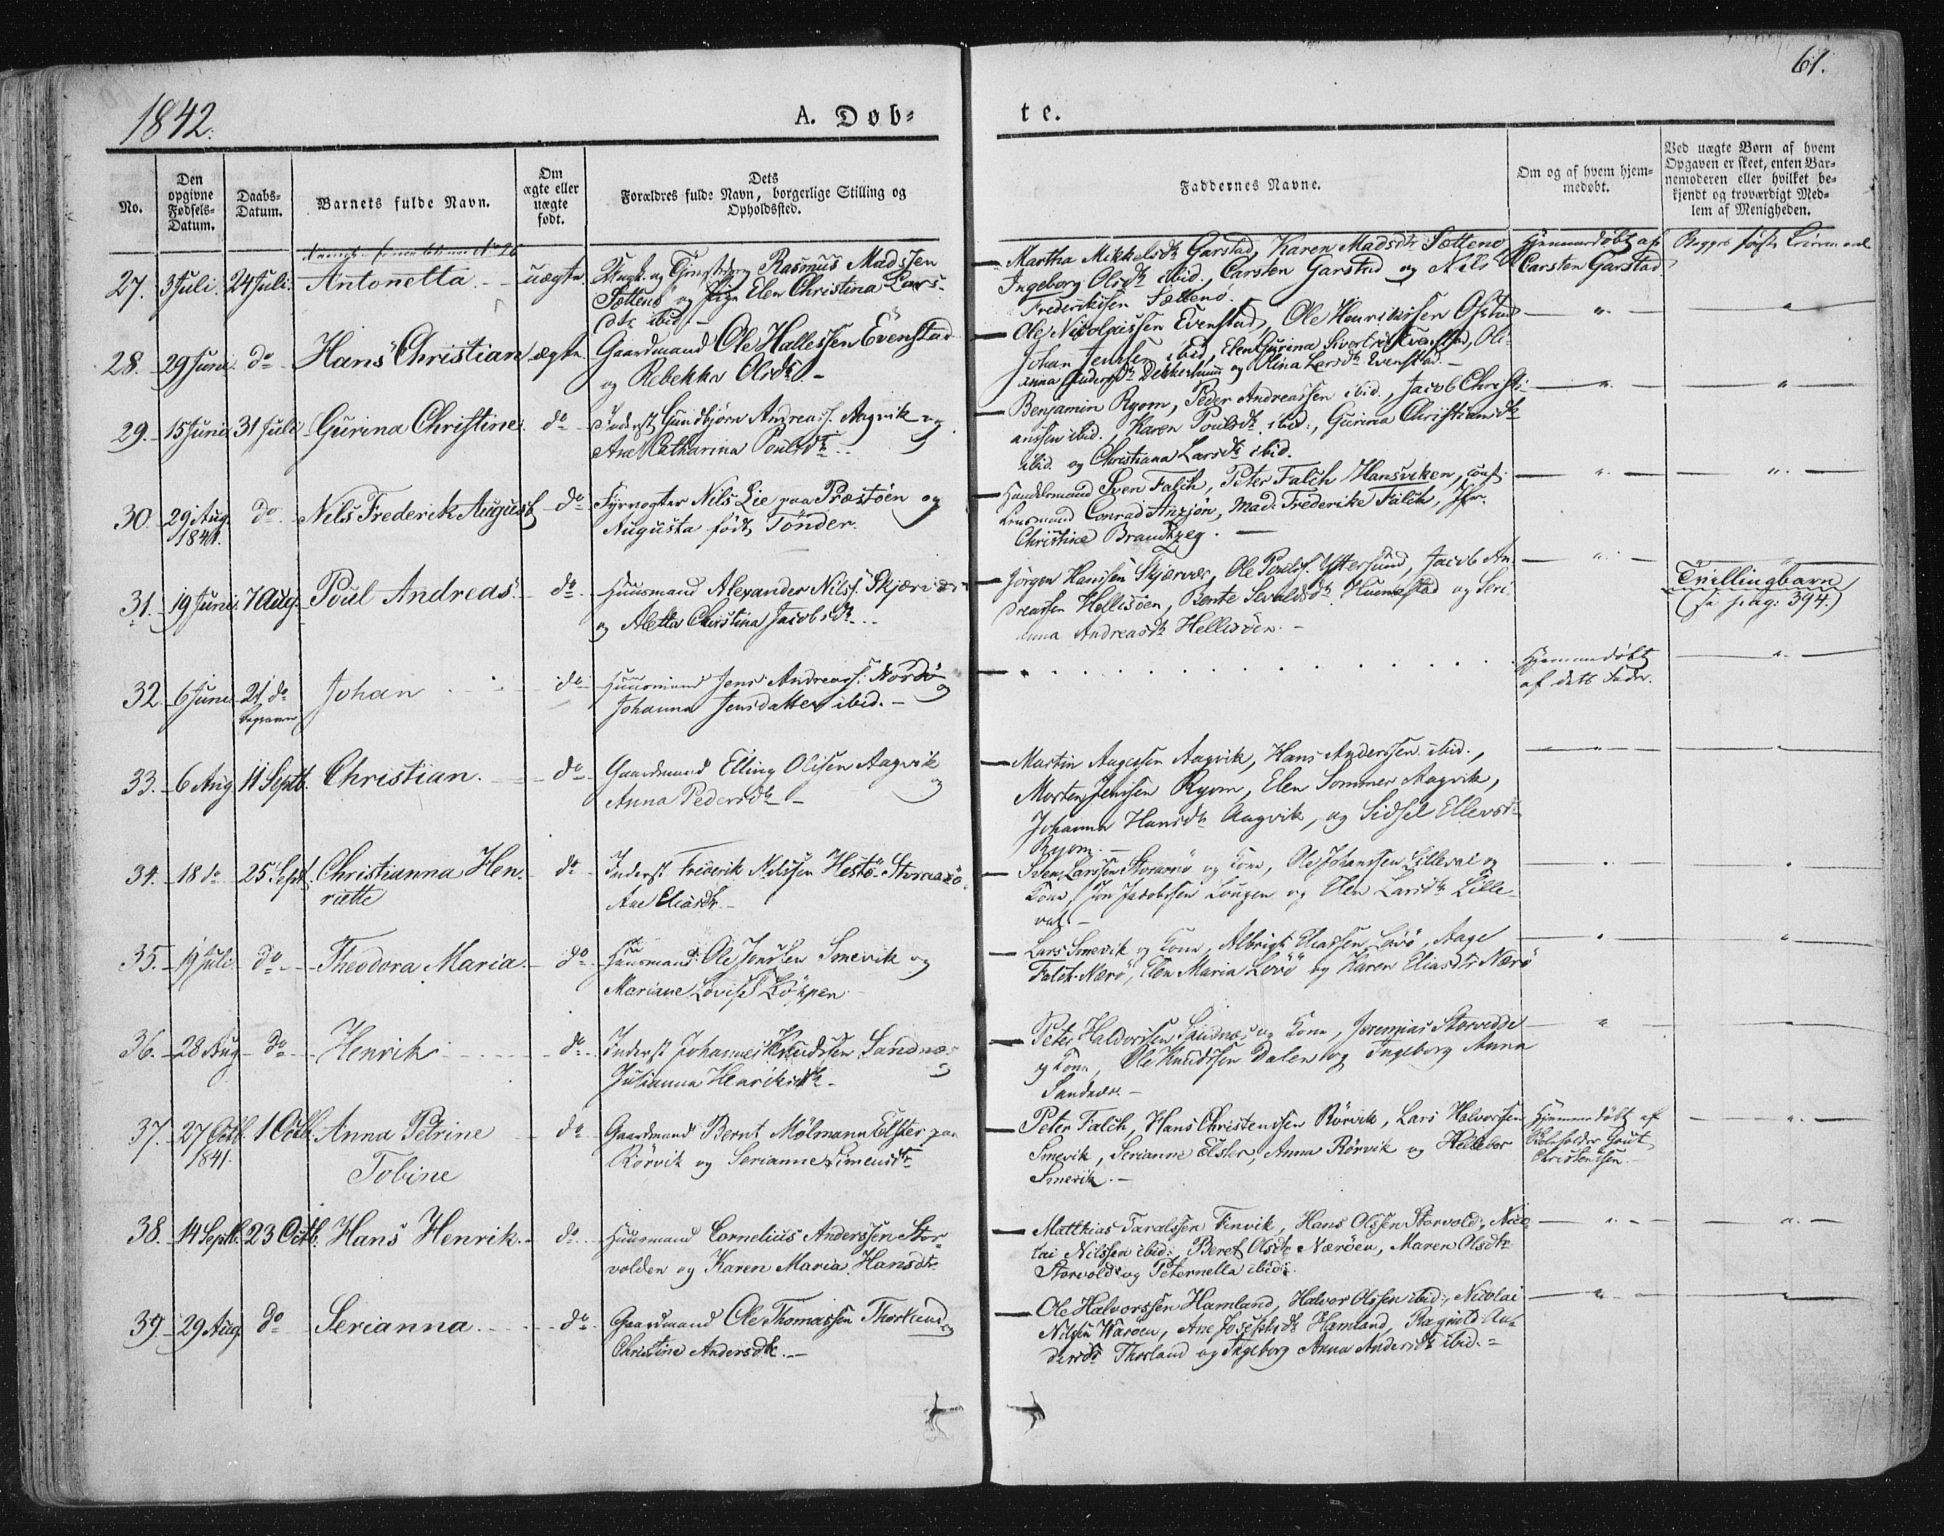 1842.
A. Døb-
te.
61.
No.
Den opgivne Fødsels-Datum.
Daabs-Datum.
Barnets fulde Navn.
Om ægte eller uægte født.
Dets
Forældres fulde Navn, borgerlige Stilling og
Opholdssted.
Faddernes Navne.
Om og af hvem hjem-
medøbt.
Ved uægte Børn af hvem
Opgaven er skeet, enten Bar-
nemoderen eller hvilket be-
kjendt og troværdigt Med-
lem af Menigheden.
27. 3 Juli. 24 Juli. Antonetta uægte
Rasmus Madssen
og Pige Elen Christina Lars-
ibid.
Martha Mikkelsdtr Garstad, Karen Madsdtr Sættenø
Ingeborg Olsdtr ibid, Carsten Garstad og Nils
Frederiksen Sættenø.
Hjemmedøbt af
Carsten Garstad
28. 29 Juni do Hans Christian ægte
Gaardmand Ole Hallessen Evenstad
og Rebekka Olsdtr
Ole Nicolaissen Evenstad, Ole Henrikssen
Johan Jenssen ibid, Elen Gurina Evenstad, Oli-
anna og Olina Larsdtr Evenstad.
29. 15 Juni 31 Juli Gurina Christine do
Inderst Gundbjørn Andreass. Aagvik og
Ane Catharina Poulsdtr
Benjamin Ryom, Peder Andreassen ibid., Jacob Christi-
anssen ibid., Karen Poulsdtr ibid., Gurina Christiansdtr
ibid. og Christiana Larsdtr ibid.
30. 29 Aug. 1841. do Nels Frederik August do
Fyrvogter Nils Lie paa Præstøen og
Augusta født Tønder.
Handelsmand Sven Falch, Peter Falch Hansviken, const.
Lensmand Conrad Anzjøn, Mad: Frederike Falch, Jfr.
Christine Brandtzeg.
31. 19 Juni 7 Aug. Poul Andreas do
Huusmand Alexander Nilss. Skjærvær
og Aletta Christina Jacobsdtr
Jørgen Hanssen Skjærvær, Ole Poulss. Yttersund, Jacob An-
dreassen Hellisøen, Bente Sevaldsdtr Hunnestad og Seri-
anna Andreasdtr Hellisøen.
Trillingbarn
(se pag: 394.)
32. 6 Juni 21 do Johan do
Huusmand Jens Andreass. Nordø
og
Johanna Jensdatter ibid.
Hjemmedøbt
af dets Fader.
33. 6 Aug 11 Septb. Christian. do
Gaardmand Elling Olssen Aagvik
og
Anna Pedersdtr
Martin Aagessen Aagvik, Hans Anderssen ibid.,
Morten Jenssen Ryom, Elen Sommer Aagvik,
Johanna Hansdtr Aagvik, og Sidsel Ellevsdtr
Ryom.
34. 18 do 25 Septb. Christianna Hen-
riette do
Inderst Frederik Nilssen Hestø
Ane Eliasdtr
Larssen og Kone, Ole Johanssen Lilleval og
Kone, Jon Jacobssen og Elen Larsdtr Lille-
val.
35. 19 Juli do Theodora Maria do
Huusmand Ole Jenssen Smevik og
Mariane Lovise Løkpen
Lars Smevik og Kone, Albrigt Eliassen Lovø, Aage
Falch Nærø, Elen Maria Lovø og Karen Eliasdtr Nærø
36. 28 Aug do Henrik do
Inderst Johannes Knudssen Sandnæs
og
Julianna Henriksdtr
Peter Haldorssen Sandnæs og Kone, Jeremias Storvedde
og Kone, Ole Knudssen Dalen og Ingeborg Anna
Sandnæs.
37. 27 Octb. 1841. 1 Octb. Anna Petrine
Tobine do
Gaardmand Bernt Mølmann Elster paa
Rørvik og Serianne Simensdtr
Peter Falch, Hans Christenssen Rørvik, Lars Halvorssen
Smevik, Serianne Elster, Anna Rørvik og Hellebor
Smevik.
Hjemmedøbt af
Skoleholder
Christenssen.
38. 14 Septb. 23 Octb. Hans Henrik do
Huusmand Cornelius Anderssen Stor-
volden og Karen Maria Hansdtr
Matthias Taralssen Finvik, Hans Olssen Storvold, Nico-
lai Nilssen ibid., Beret Olsdtr Nærøen, Maren Olsdtr
Storvold og Peternella ibid.
39. 29 Aug. do Serianna do
Gaardmand Ole Thomassen Thorlund
og
Christine Andersdtr
Ole Halvorssen Hamland, Halvor Olssen ibid., Nicolai
Nilssen Varøen, Ane Josephsdtr Hamland, Ragnild An-
dersdtr Thorland og Ingeborg Anna Andersdtr ibid.